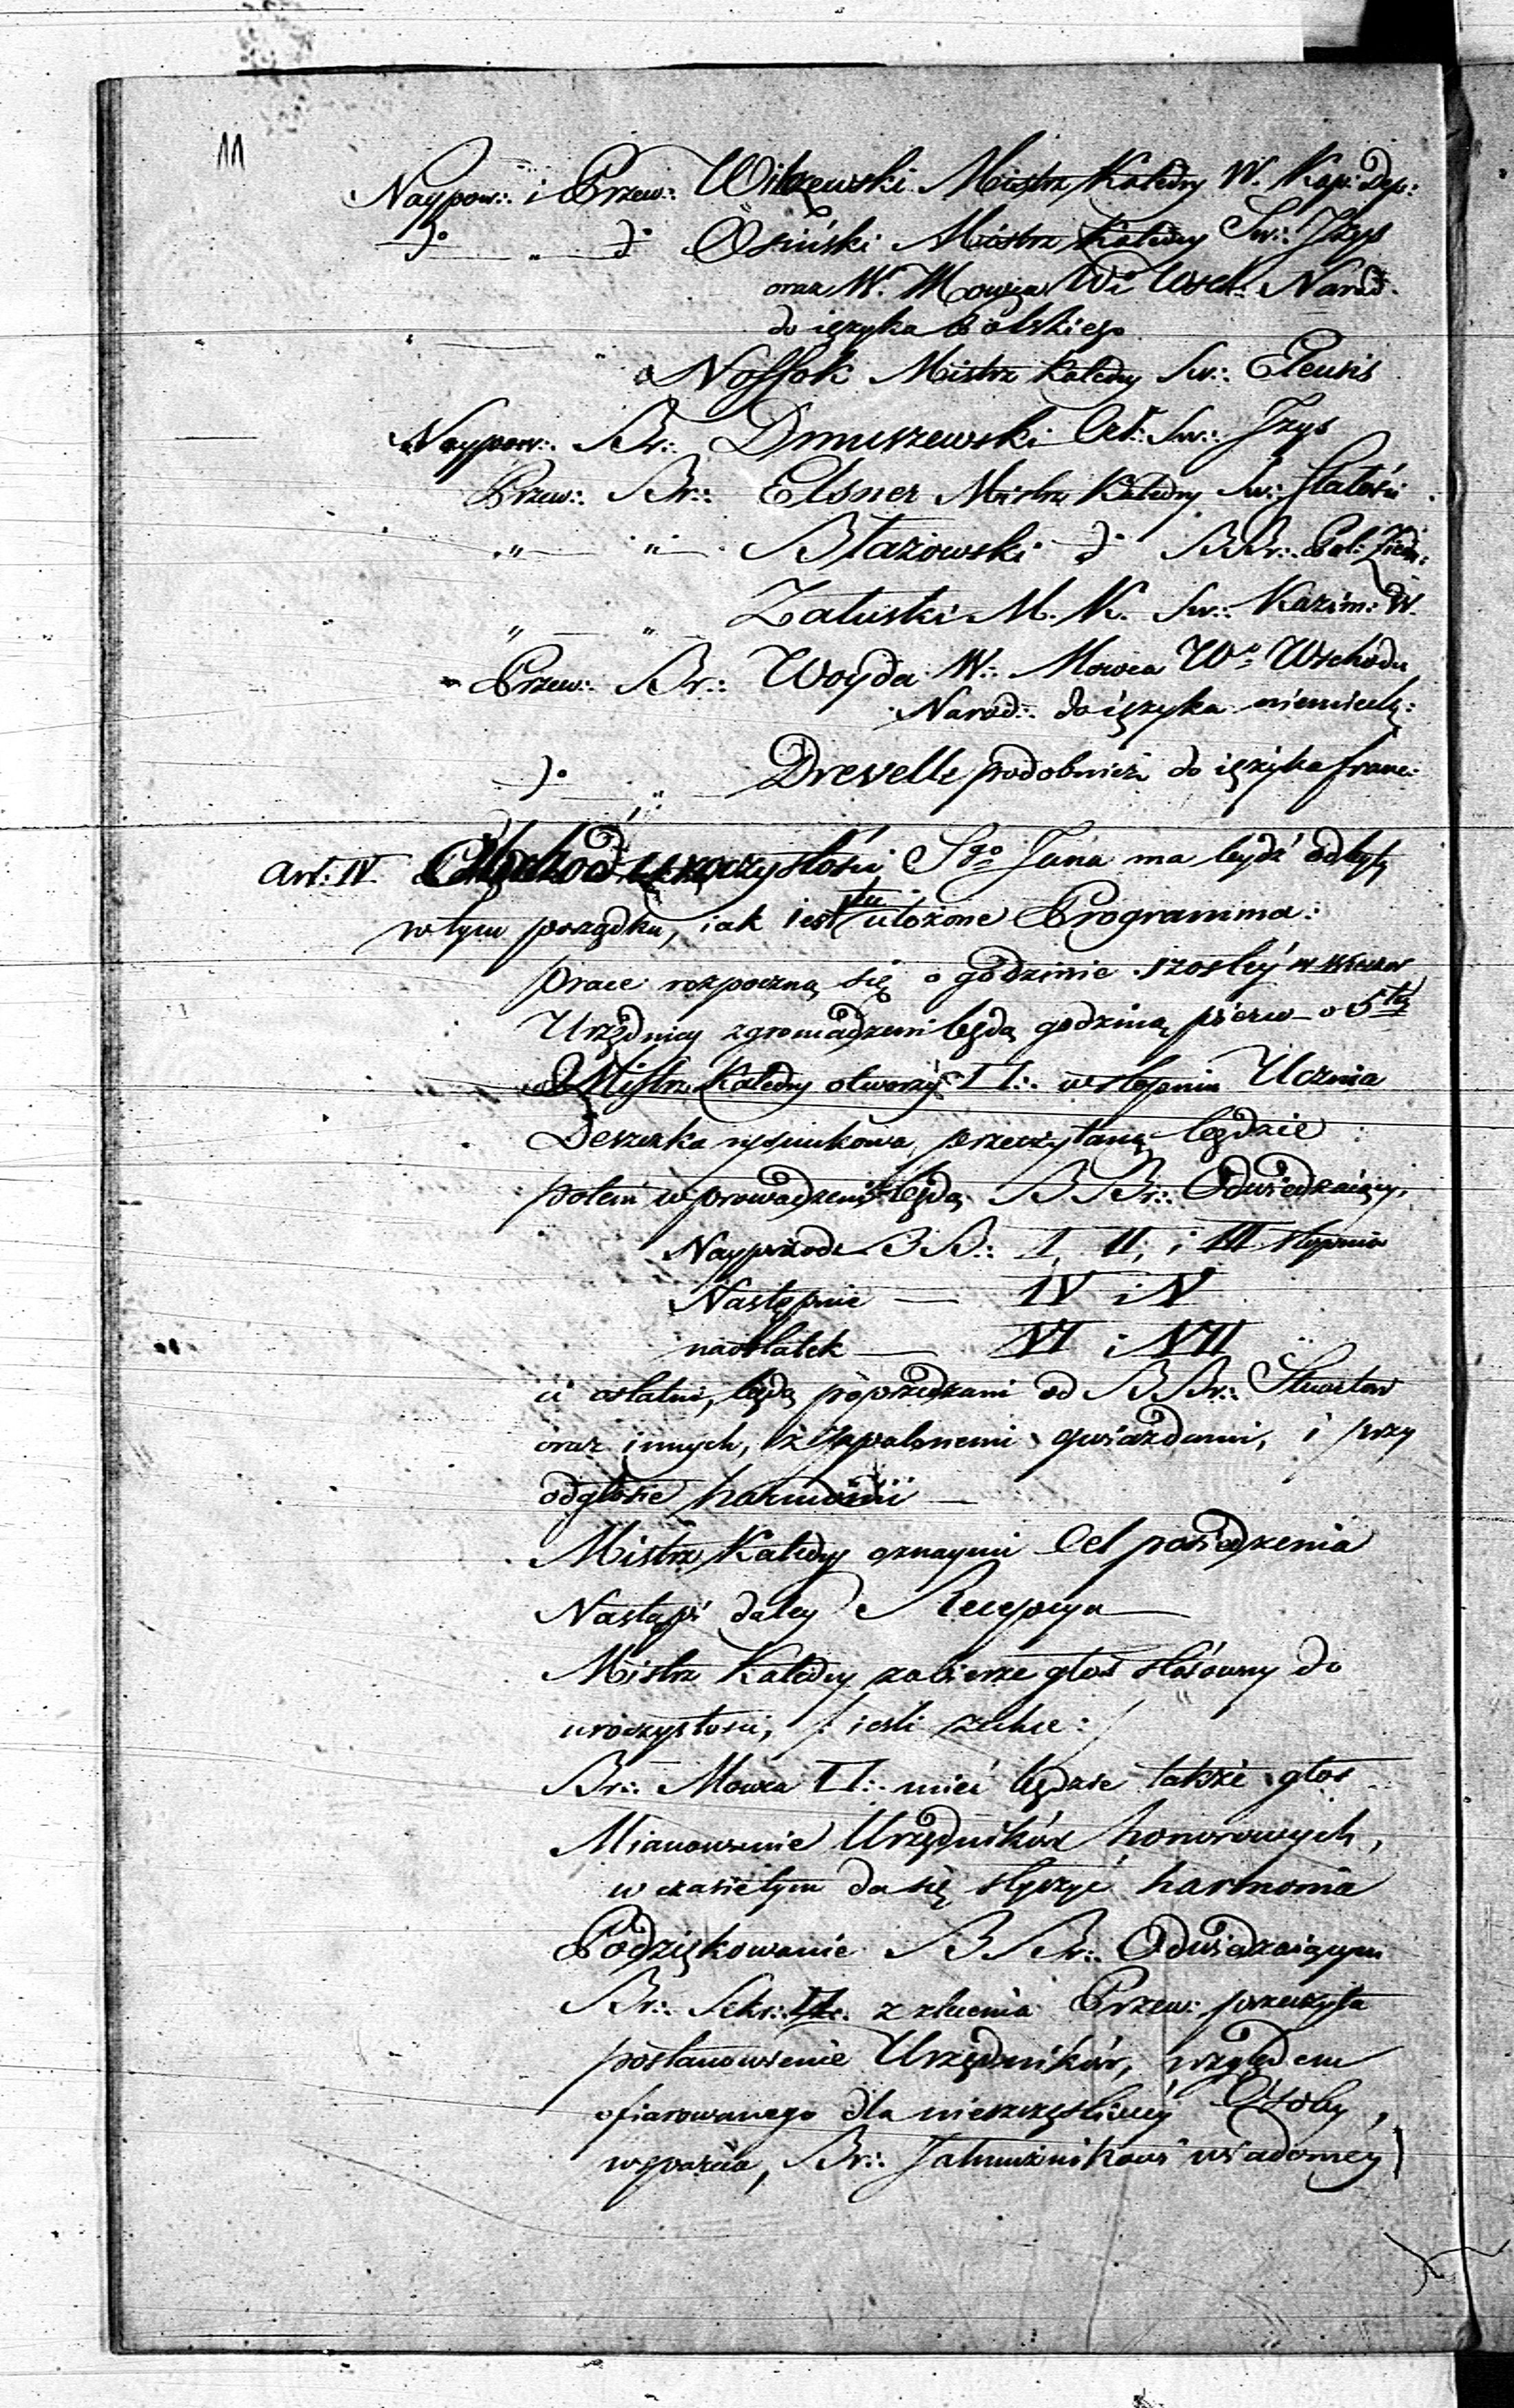 11
Naypow:. i Przew:. Wilczewski Mistrz Katedry W. Kap: Dep:
do „ do Osiński Mistrz Katedry Św:. Izys
oraz W. Mowca Wo Wsch: Narod.
do ięzyka Polskiego
„ Nossok Mistrz Katedry Św:. Eleusis
Naypow:. Br:. Dmuszewski Św:. Izys
Przew:. Br:. Elsner Mistrz Katedry Św:. Stałości
„ „ Błazowski do BBr:. Pol: Ziedn:
„ „ Załuski M. K. Św:. Kazim: W.
Przew:. Br:. Woyda W:. Mowca Wo Wschodu
Narod:. do ięzyka niemieck:
do „ Drevelle podobnież do ięzyka franc:
Art: IV Obchod uroczystości Sgo Jana ma bydź odbyty
w tym porządku, iak iest tu ułożone Programma:
prace rozpoczną się o godzinie szostey w wieczor
Urzędnicy zgromadzeni będą godziną pierw o 5tey
Mistrz Katedry otworzy w stopniu Ucznia
Deszczka rysunkowa przeczytaną będzie
potem wprowadzeni będą BBr:. Odwiedzaiący,
Nayprzod BB:. I, II, i III stopnia
Następnie — IV i V
naostatek — VI i VII
ci ostatni, będą poprzedzani od BBr:. Stuartow
oraz innych, z zapalonemi gwiazdami, i przy
odgłosie harmonii —
Mistrz Katedry oznaymi Cel posiedzenia
Nastąpi daley Recepcya —
Mistrz Katedry zabierze głos stosowny do
uroczystości, /: iesli zechce :/
Br:. Mowca mieć będzie także głos
Mianowanie Urzędników honorowych,
w czasie tym da się słyszyć harmonia
Podziękowanie BBr:. Odwiedzaiącym
Br:. Sekr:. z zlecenia Przew: przeczyta
postanowienie Urzędników, względem
ofiarowanego dla nieszczęśliwey Osoby,
wsparcia, Br:. Jałmużnikowi wiadomey